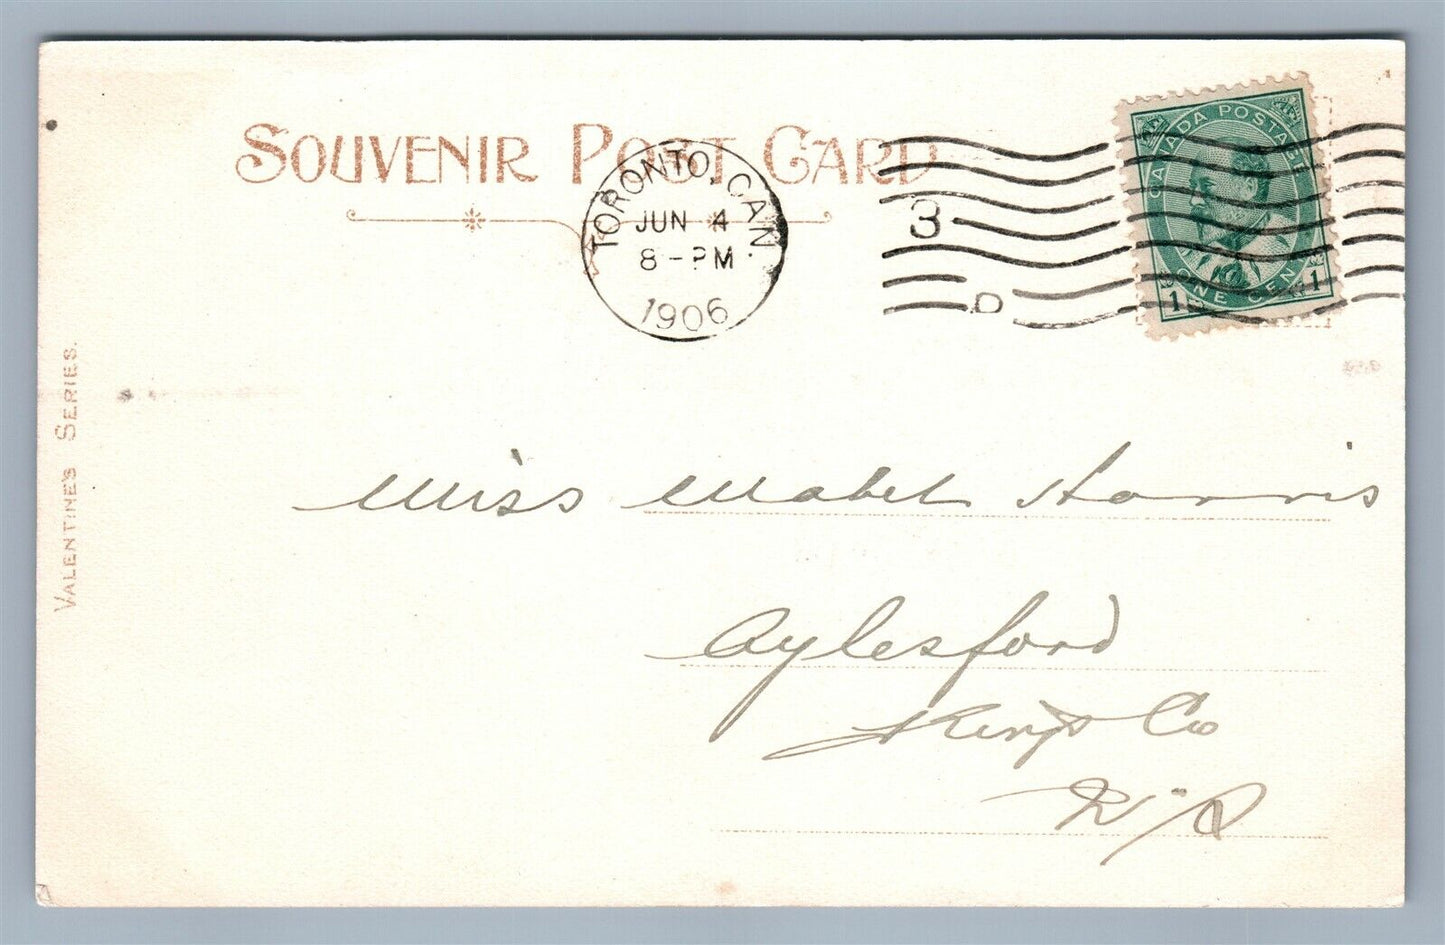 SOUVENIR POST CARD
TORONTO, CAN.
JUN 4
8 - PM
1906
3
D
CANADA POSTAGE
ONE CENT
1 1
VALENTINE'S SERIES.
Miss Mabel Harris
Aylesford
Kings Co
N.S